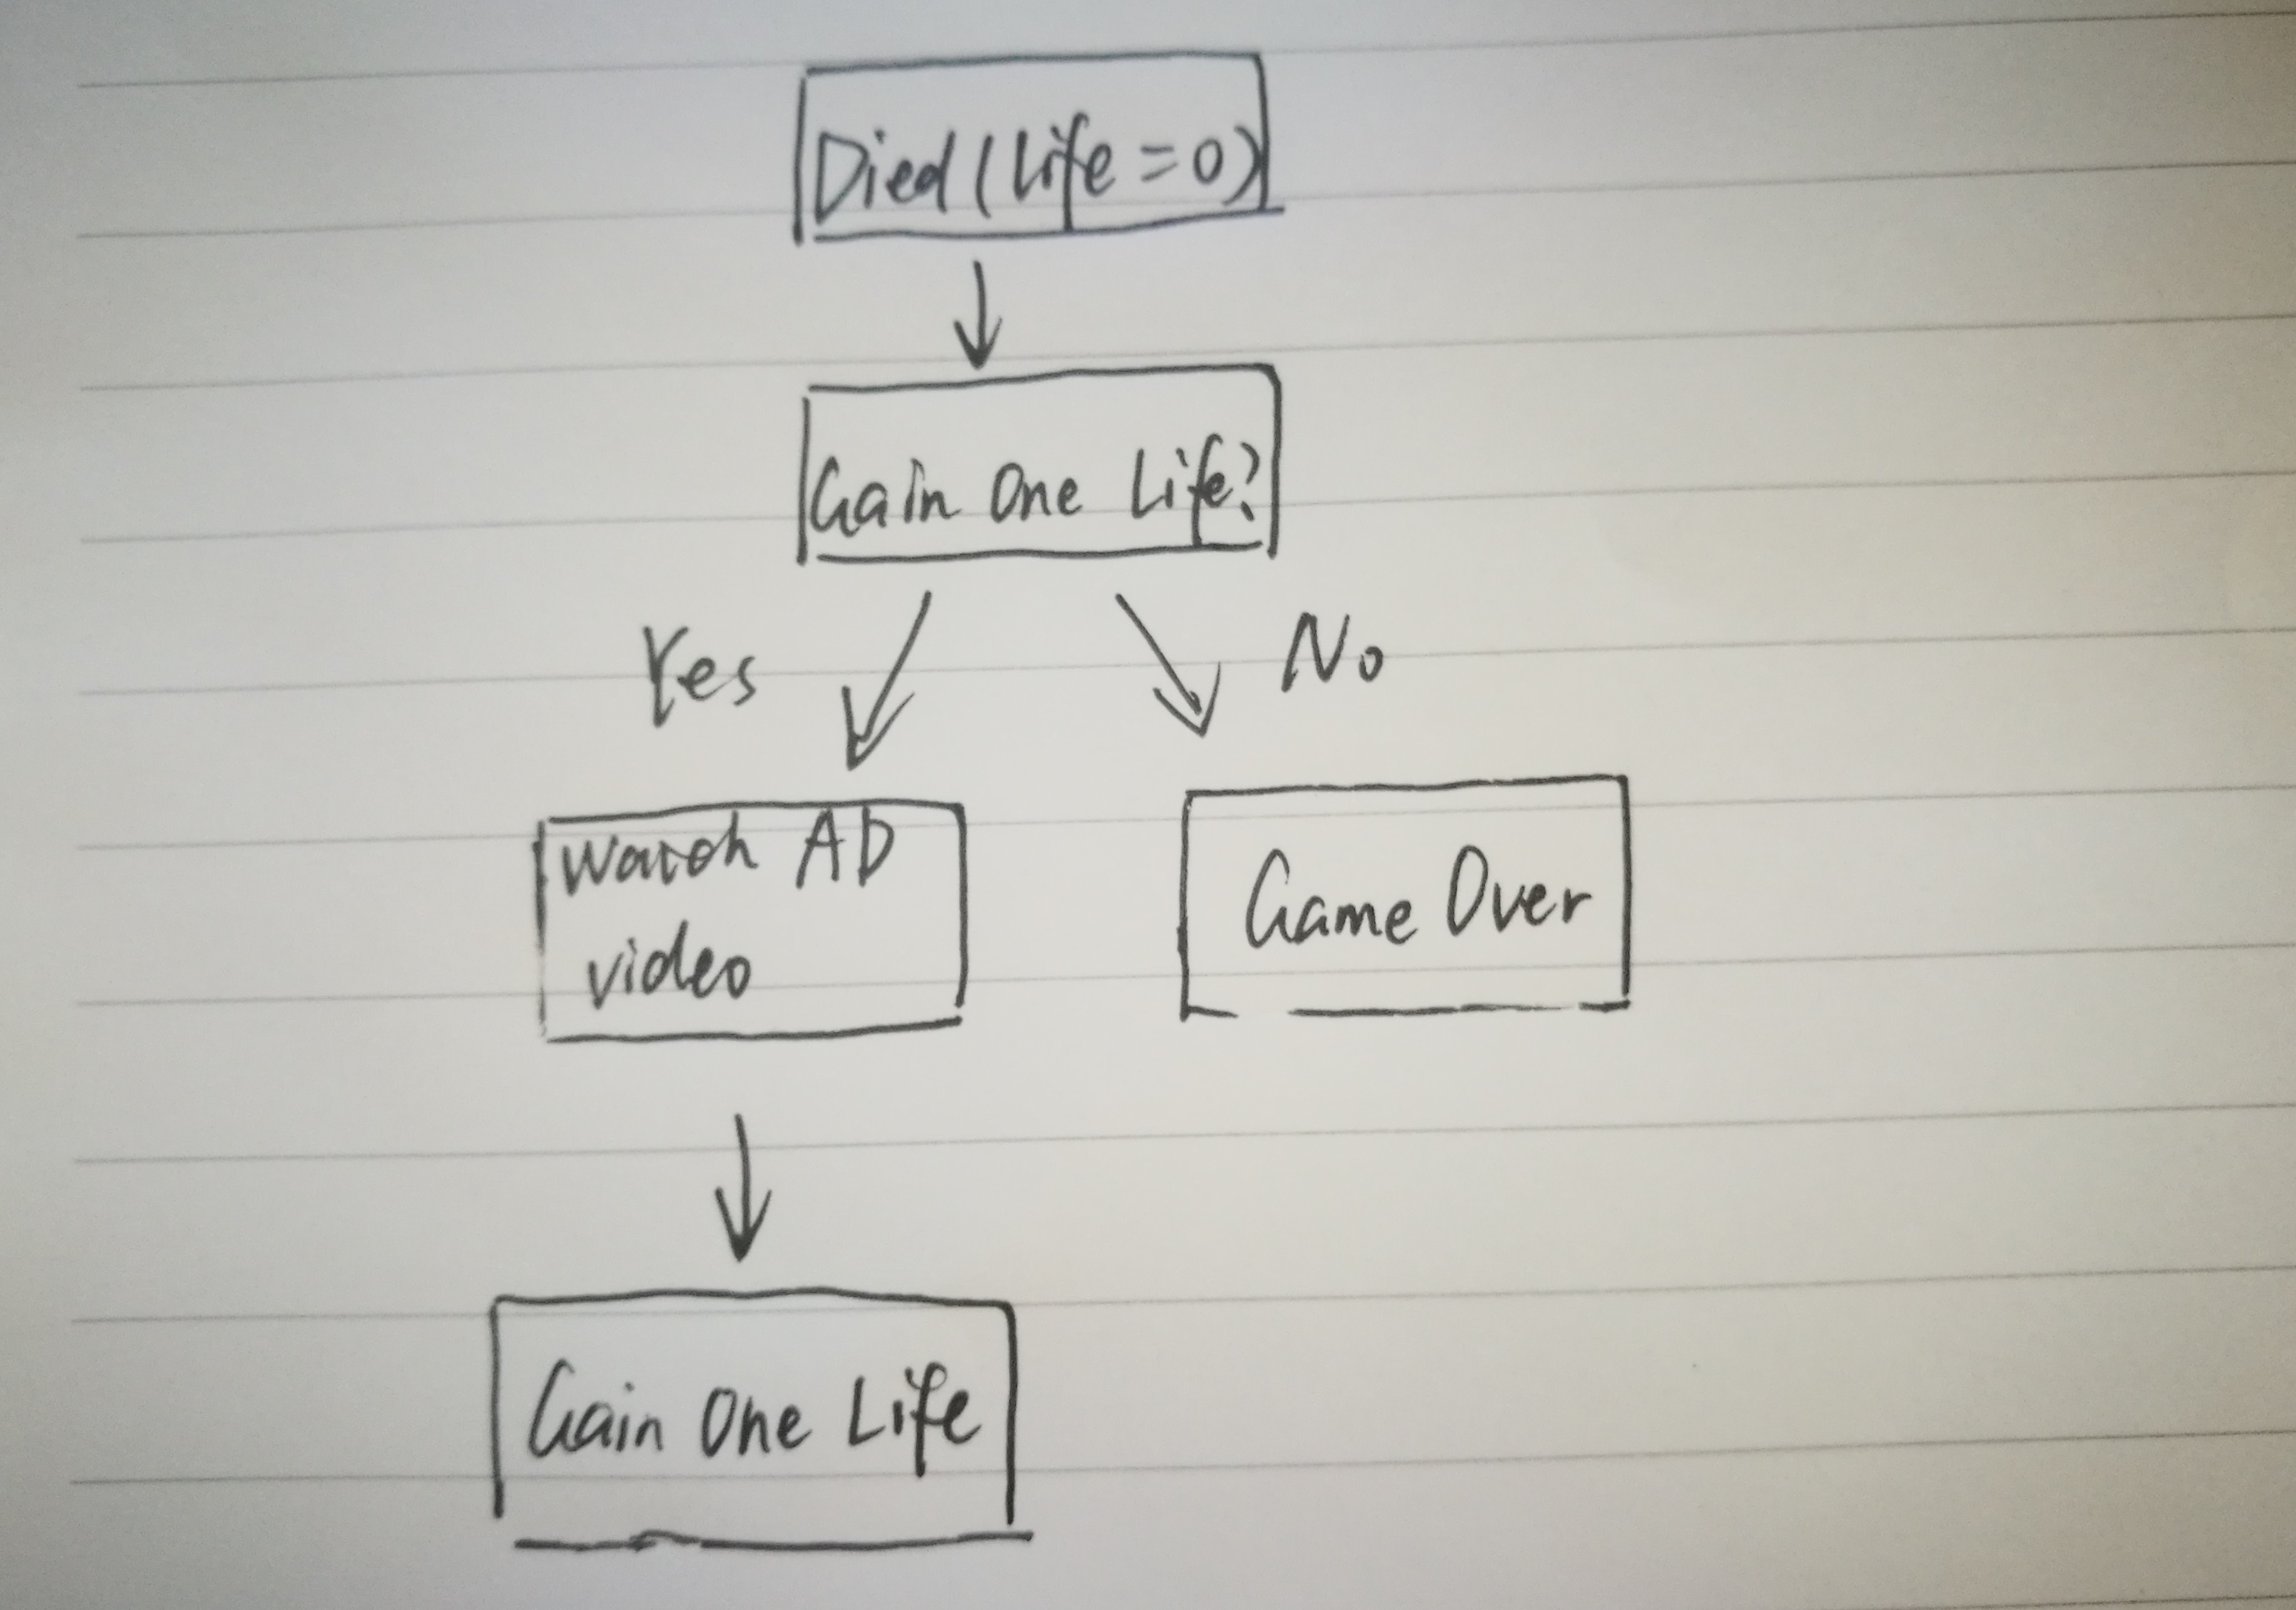 Died (Life = 0)
Gain One Life?
Yes
No
Watch AD
video
Game Over
Gain One Life